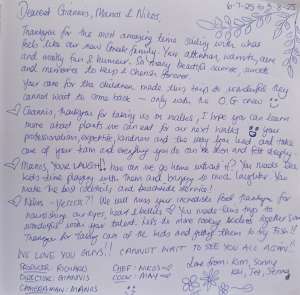 6-7-25 to 5-8-25
Dearest Giannis, Manos & Nikos,
Thankyou for the most amazing time sailing with what
feels like our new Greek family. Your attention, warmth, care
and mostly fun & humour. So many beautiful sunrise, sunsets
and memories to keep & cherish forever.
Your care for the children made this trip so wonderful they
cannot wait to come back - only with the O.G crew
Giannis, thankyou for taking us on walks, I hope you can learn
more about plants we can eat for our next walks
your professionalism, expertise, kindness and the way you lead and take
care of your team and everything you do can be seen and felt deeply
Manos, YOUR LAUGH! How can we go home without it? You made
kids time playing with them and bringing so much laughter. You
make the best cocktails and service!
Nikos - We will miss your incredible food thankyou for
nourishing our eyes, heart & bellies You made this trip so
wonderful with your talent. Let's do more cooking together soon
Thankyou for taking care of the kids and getting them to try fish!!
WE LOVE YOU GUYS!! CANNOT WAIT TO SEE YOU ALL AGAIN!
PRODUCER: RICHARD
DIRECTOR: GIANNIS
CAMERAMAN: MANOS
CHEF: NIKOS
COOK:
Love from: Kim, Sonny
Kai, Jenny